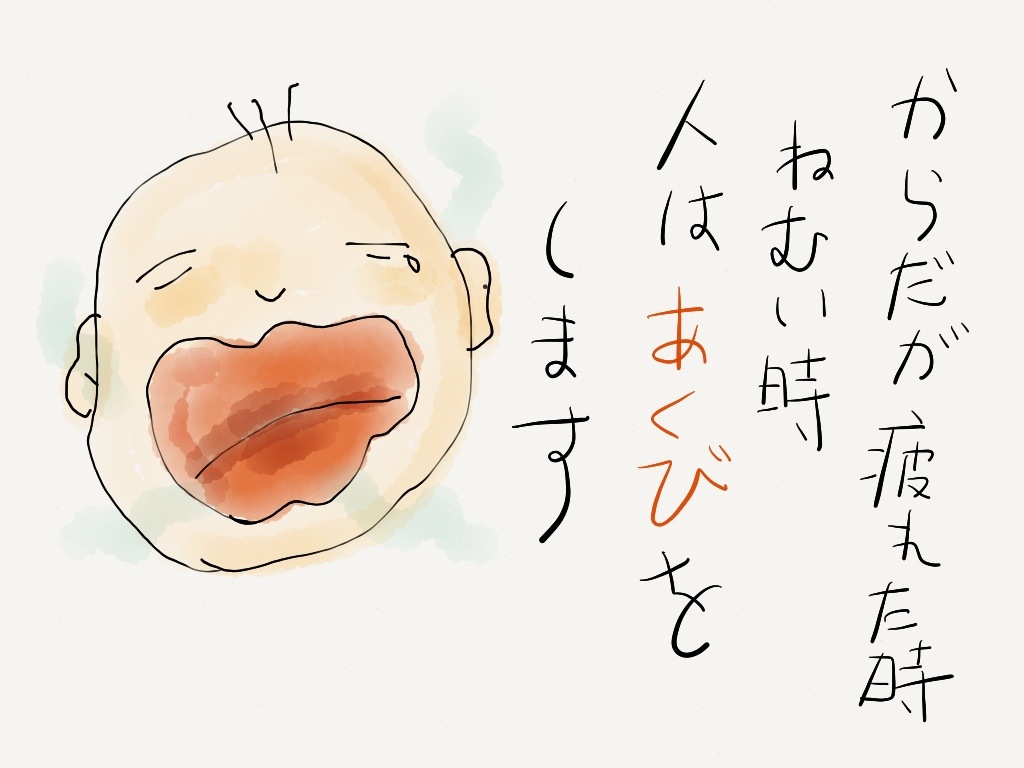 からだが疲れた時
ねむい時
人はあくびを
します